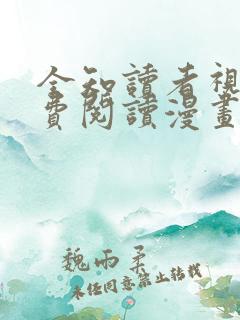 全知讀者視
費閱讀漫畫
魏雨柔
未经同意禁止转载